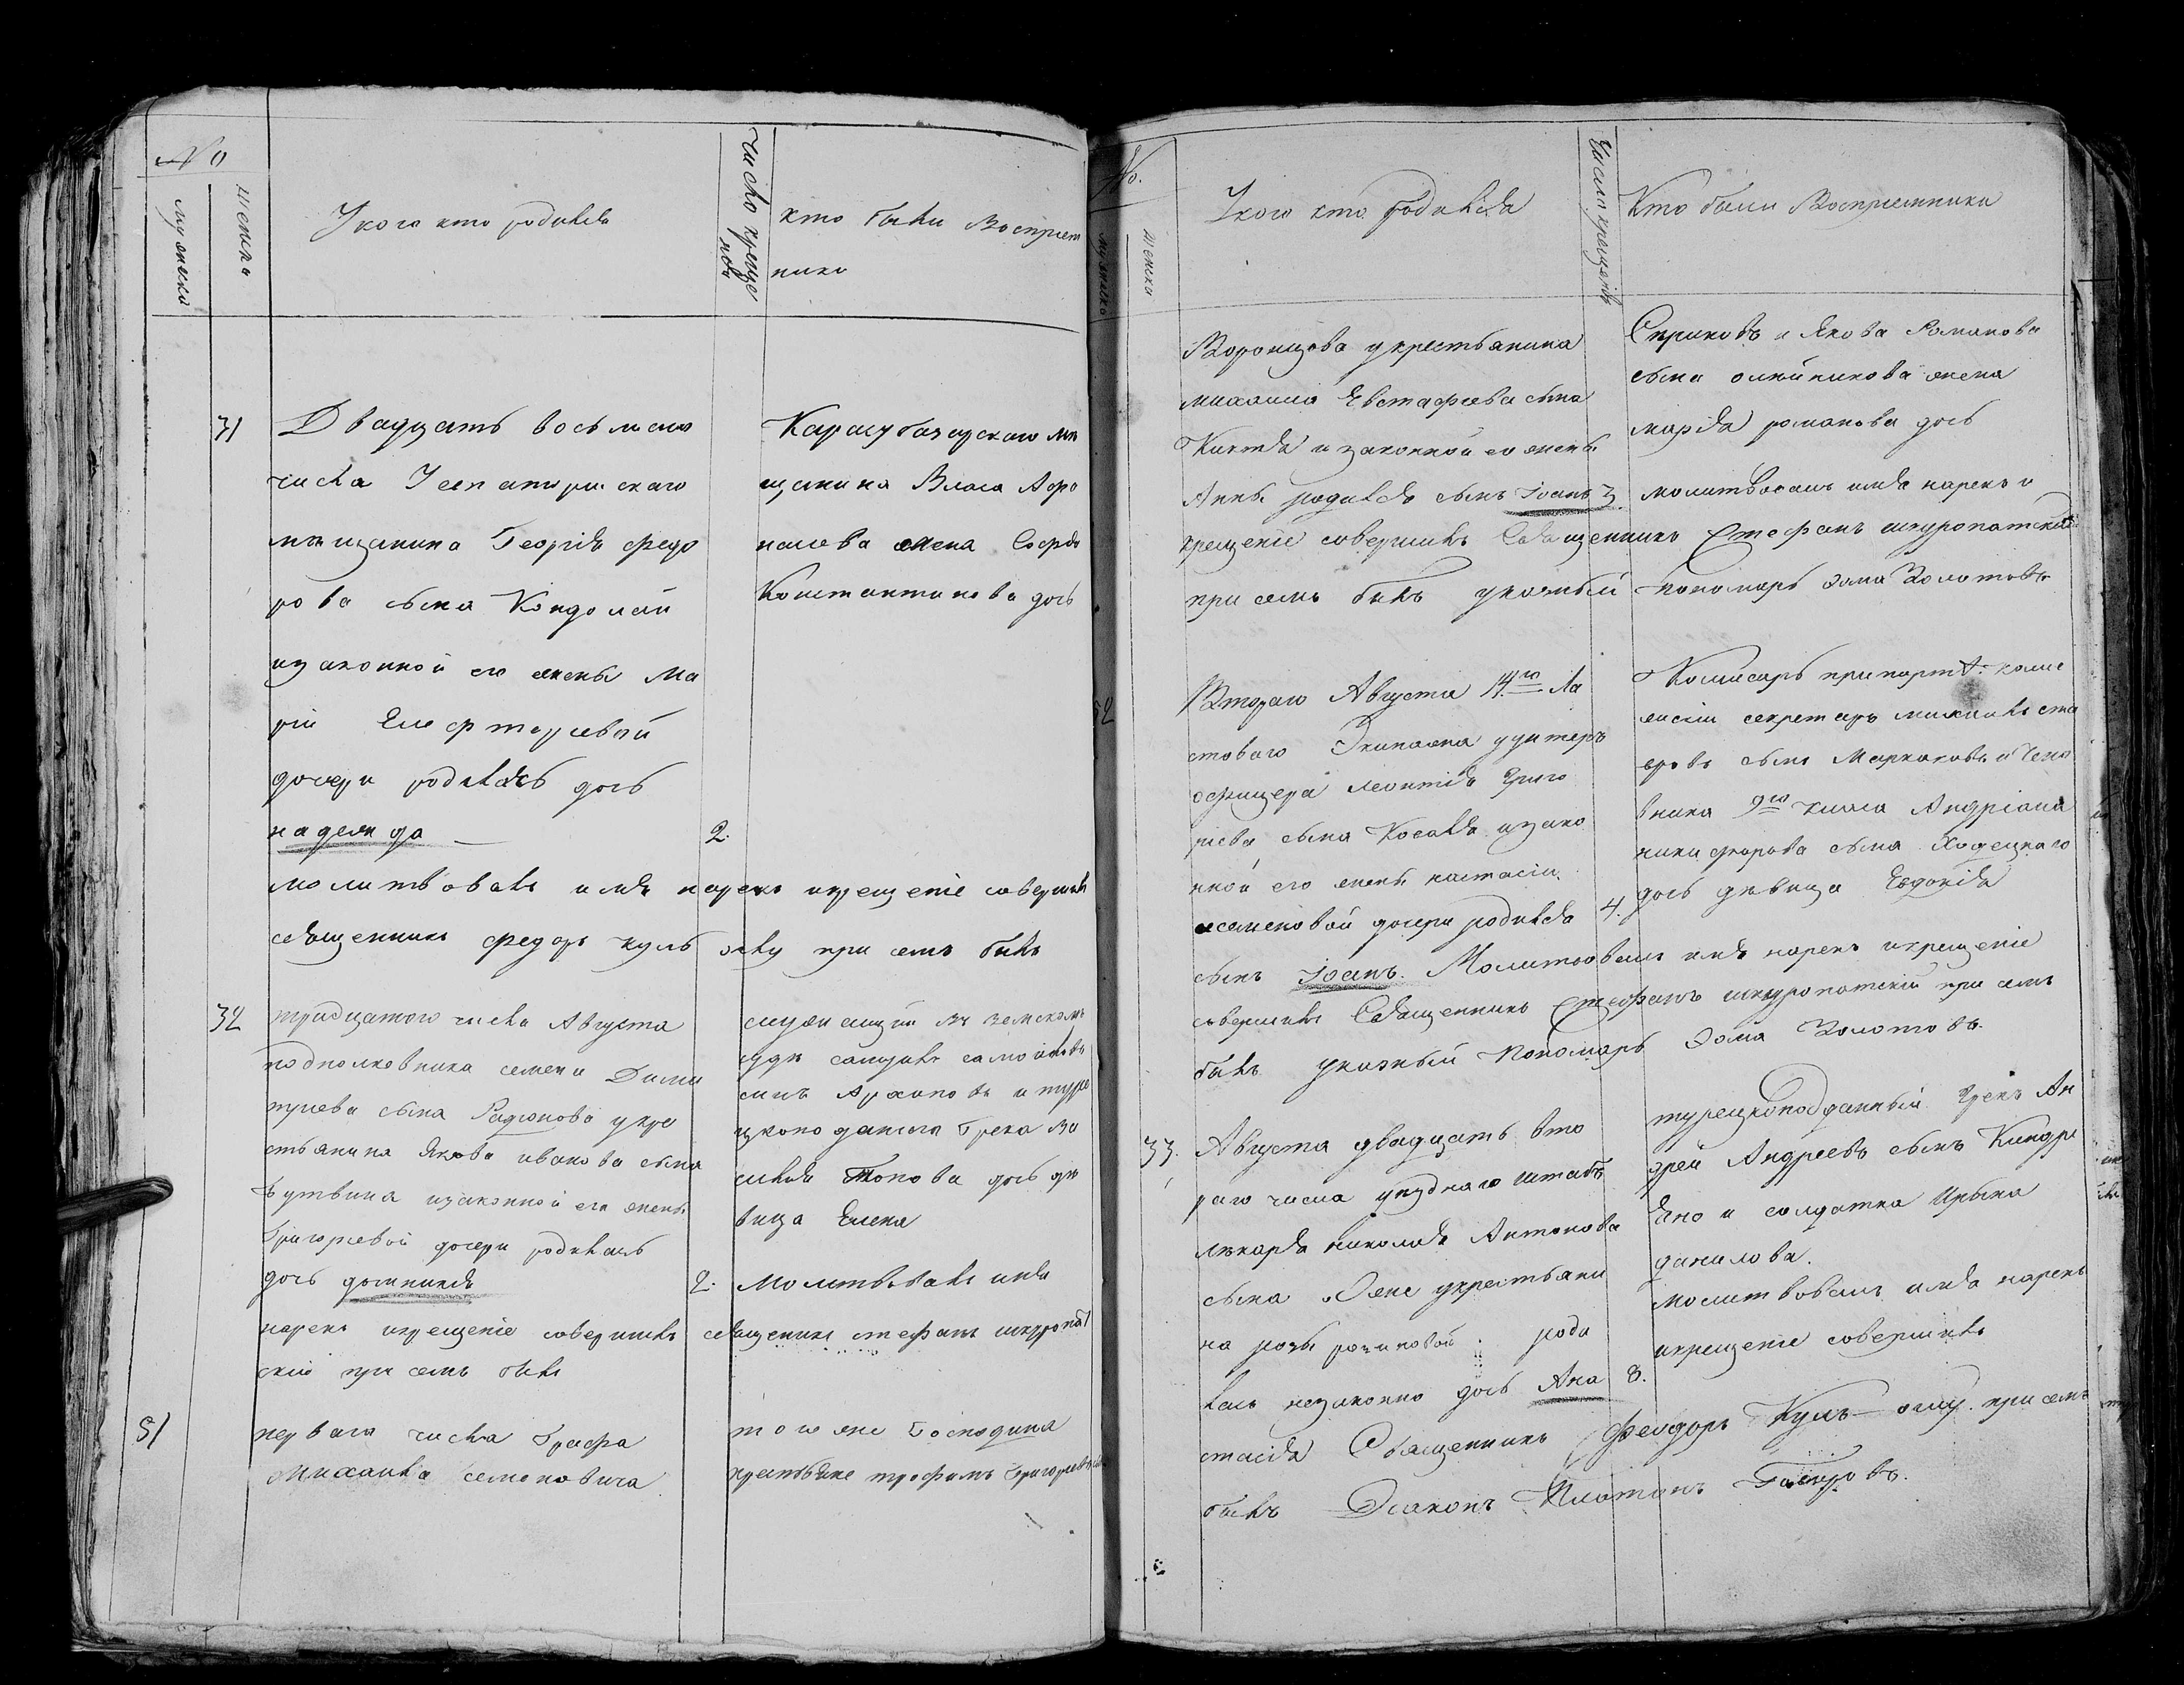 №
мужеска
женска
У кого кто родился
число креще
нія
кто были Восприем
ники
31
Двадцать восьмаго
числа Геѵпаторискаго
мѣщанина Георгія федо
рова сына Кондолай
изаконной его жены Ма
ріи Елефтерьевой
дочери родилась дочь
надежда
2.
Карасубазарскаго мѣ
щанина Власа Афо
насьева жена Софія
Константинова дочь
молитвовалъ имя нарекъ икрещеніе совершилъ
священникъ федоръ куль при семъ былъ
32
тридцатого числа Августа
подполковника семена Дими
тріева сына Радіонова укре
стьянина Якова иванова сына
изаконной его жены
Григорьевой дочери родилась
дочь домникія
2.
служащій въ земскомъ
судѣ
синъ Архиповъ и туре
цкоподданаго Грека Ва
силія Попова дочь дѣ
вица Елена
Молитвовалъ имя
нарекъ икрещеніе совершилъ священикъ стефанъ шкуропат
скій при семъ былъ
51
перваго числа Графа
Михаила семеновича
того же Господина
крестьяне трофимъ Григорьевъ
№.
мужеска
женска
У кого кто родился
Числа крещенія
Кто были Восприемники
Воронцова укрестьянина
михаила Евстафіева сына
Кихтя и законной его жены
Анны родился сынъ Іоанъ
3.
и Якова Романова
сына олийникова жена
марія романова дочь
молитвовалъ имя нарекъ и
крещеніе совершилъ Священникъ Стефанъ шкуропатскій
при семъ былъ указный пономарь Фома Золотовъ
52
Втораго Августа 14го Ла
стоваго Экипажа у унтеръ
офицера леонтія Григо
ріева сына Косовля изако
нной его жены настасіи
семеновой дочери родился
4.
Комисаръ припорт. коми
секретарь михаилъ
сынъ Маркаковъ и Чино
вника 9го класа Андріана
никифорова сына Ходецкаго
дочь дѣвица Евдокія
сынъ Іоанъ. Молитвовалъ имя нарекъ икрещеніе
совершилъ Священникъ Стефанъ шкуропатскій при семъ
былъ указный Пономарь Фома Золотовъ.
33.
Августа двадцать вто
раго числа уѣзднаго штабъ
лѣкаря николая Антонова
сына укрестьяни
на розы роди
лась незаконно дочь Ана
8.
турецкоподданный Грекъ Ан
дрей Андреевъ сынъ
и солдатка Ирына
данилова.
молитвовалъ имя нарекъ
икрещеніе совершилъ
стасія Священникъ Феодоръ Куль при семъ
былъ Діаконъ Платонъ